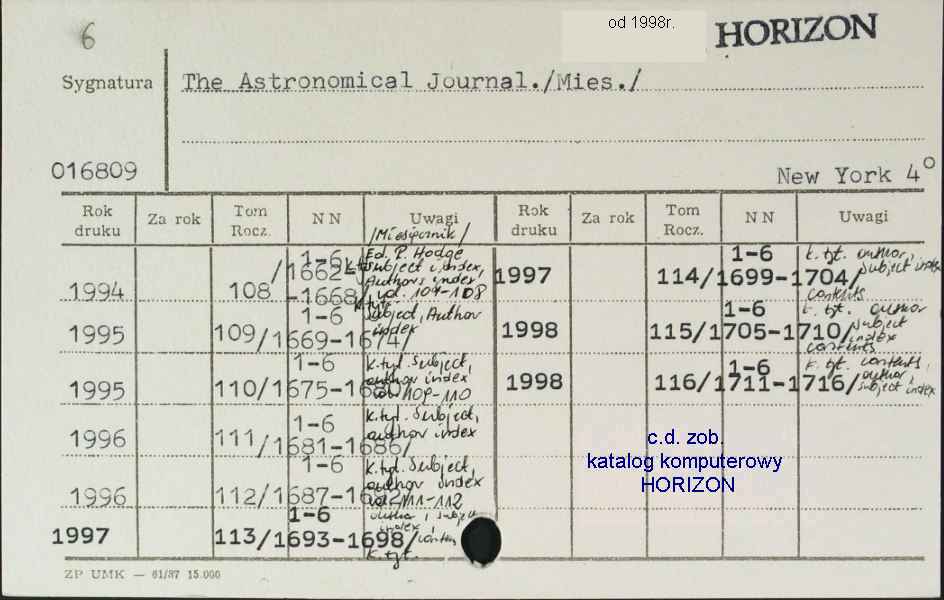 6
od 1998r.
HORIZON
Sygnatura
The Astronomical Journal./Mies./
016809
New York 4°
Rok druku
Za rok
Tom Rocz.
NN
Uwagi
/Miesięcznik/
Rok druku
Za rok
Tom Rocz.
NN
Uwagi
1994 108 /1662-1668/ 1-6 Ed. P. Hodge
Subject index,
Authors index
vol. 107-108
k. tyt.
1995 109/1669-1674/ 1-6 Subject, Author
index
1995 110/1675-1680 1-6 k. tyt. Subject,
author index
vol. 109-110
1996 111/1681-1686/ 1-6 k. tyt. Subject,
author index
1996 112/1687-1692 1-6 k. tyt. Subject,
author index
vol. 111-112
1997 113/1693-1698/ 1-6 author, subject
index
k. tyt.
1997 114/1699-1704/ 1-6 k. tyt. author,
subject index
contents
1998 115/1705-1710/ 1-6 k. tyt. author
subject
index
contents
1998 116/1711-1716/ 1-6 k. tyt. contents,
author,
subject index
c.d. zob.
katalog komputerowy
HORIZON
ZP UMK — 61/87 15.000